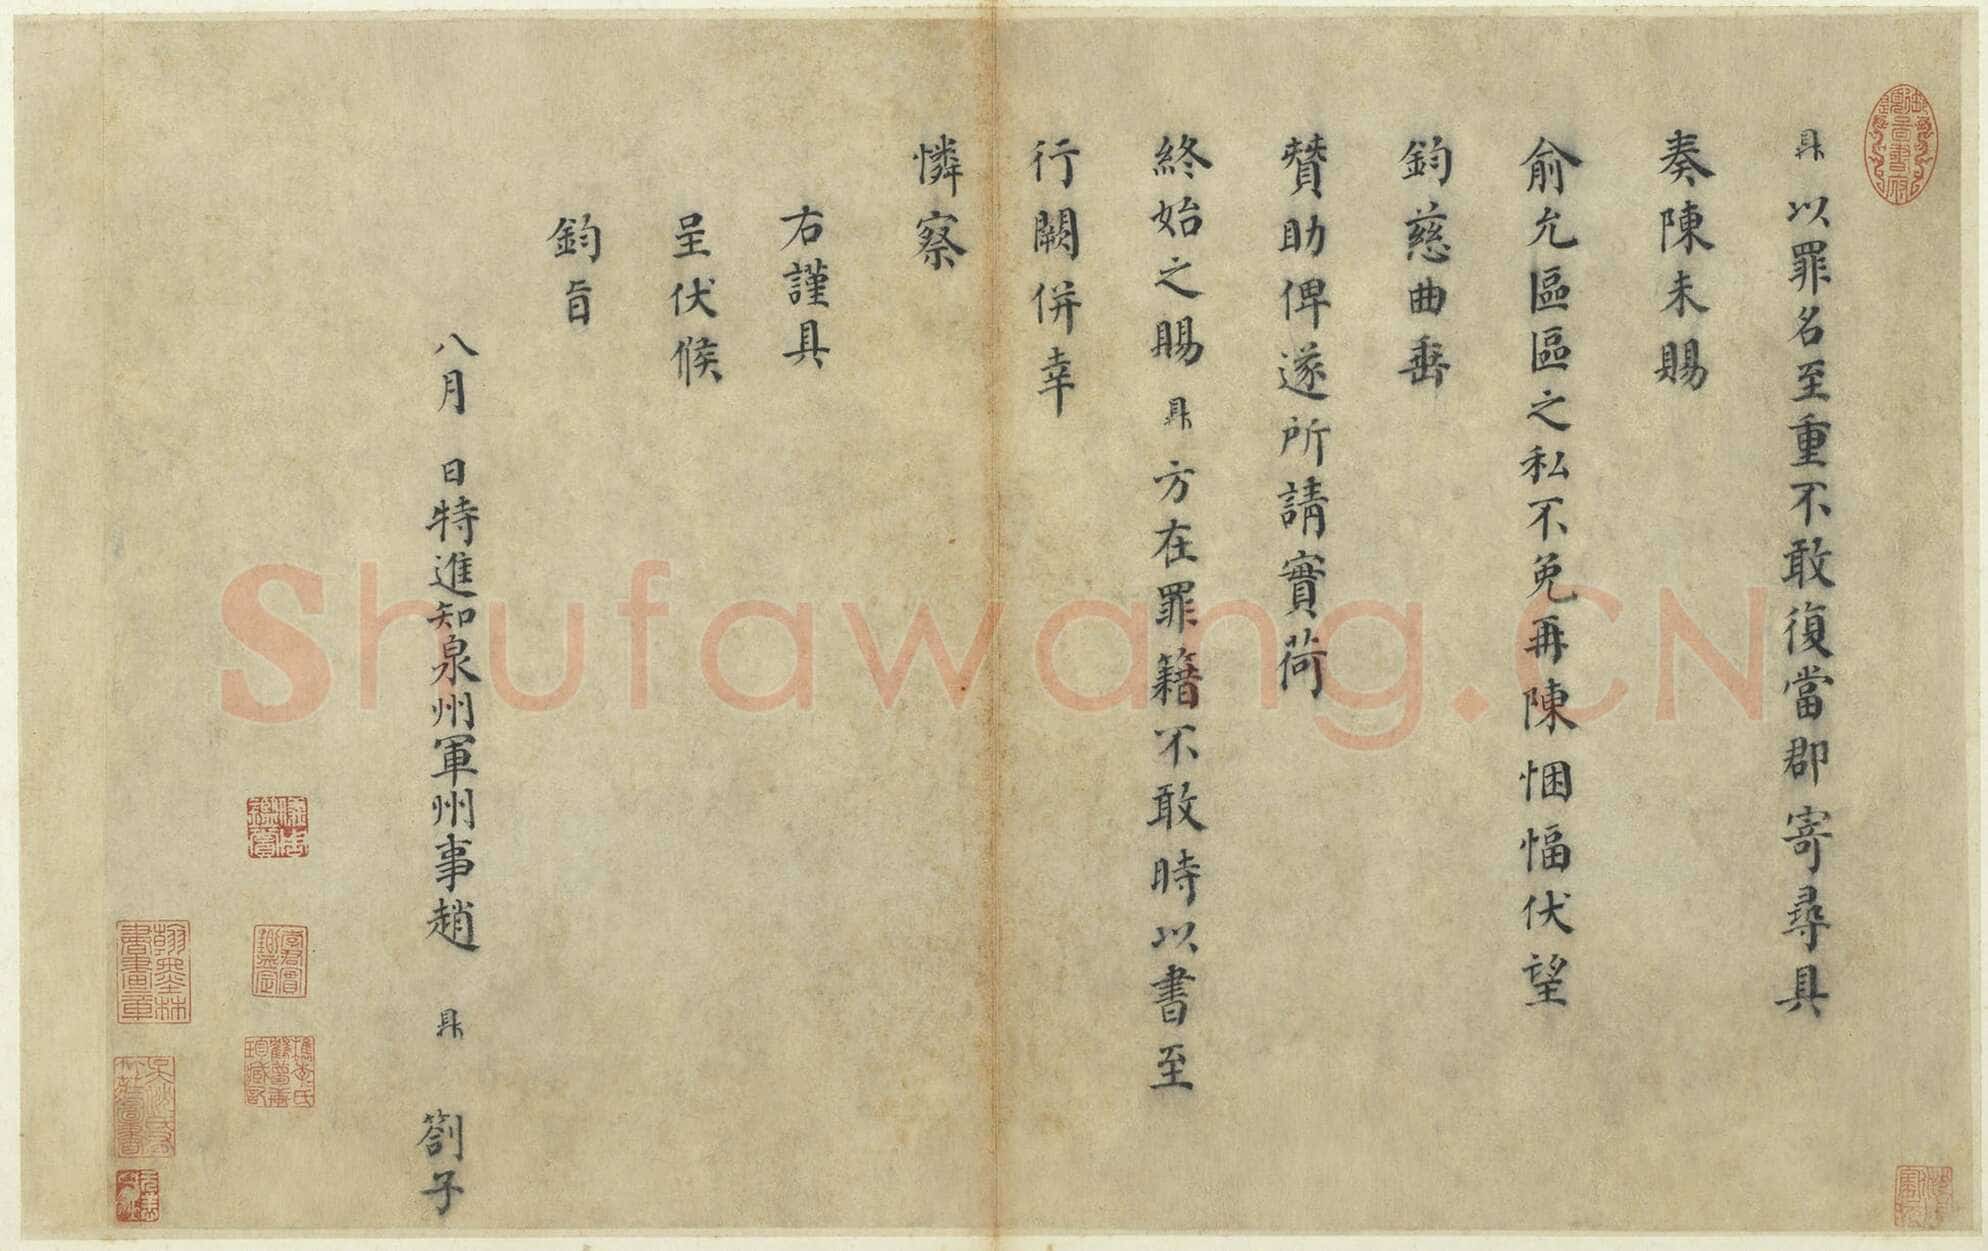 鼎以罪名至重不敢復當郡寄尋具
奏陳未賜
俞允區區之私不免再陳悃愊伏望
鈞慈曲垂
贊助俾遂所請實荷
終始之賜鼎方在罪籍不敢時以書至
行闕併幸
憐察
右謹具
呈伏候
鈞旨
八月 日特進知泉州軍州事趙 鼎 劄子
Shufawang.CN
翰墨林書畫章